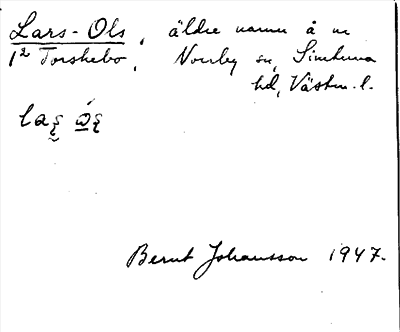 Lars-Ols, äldre namn å nr
1² Torskebo, Norrby sn, Simtuna
hd, Västm. l.
Bernt Johansson 1947.